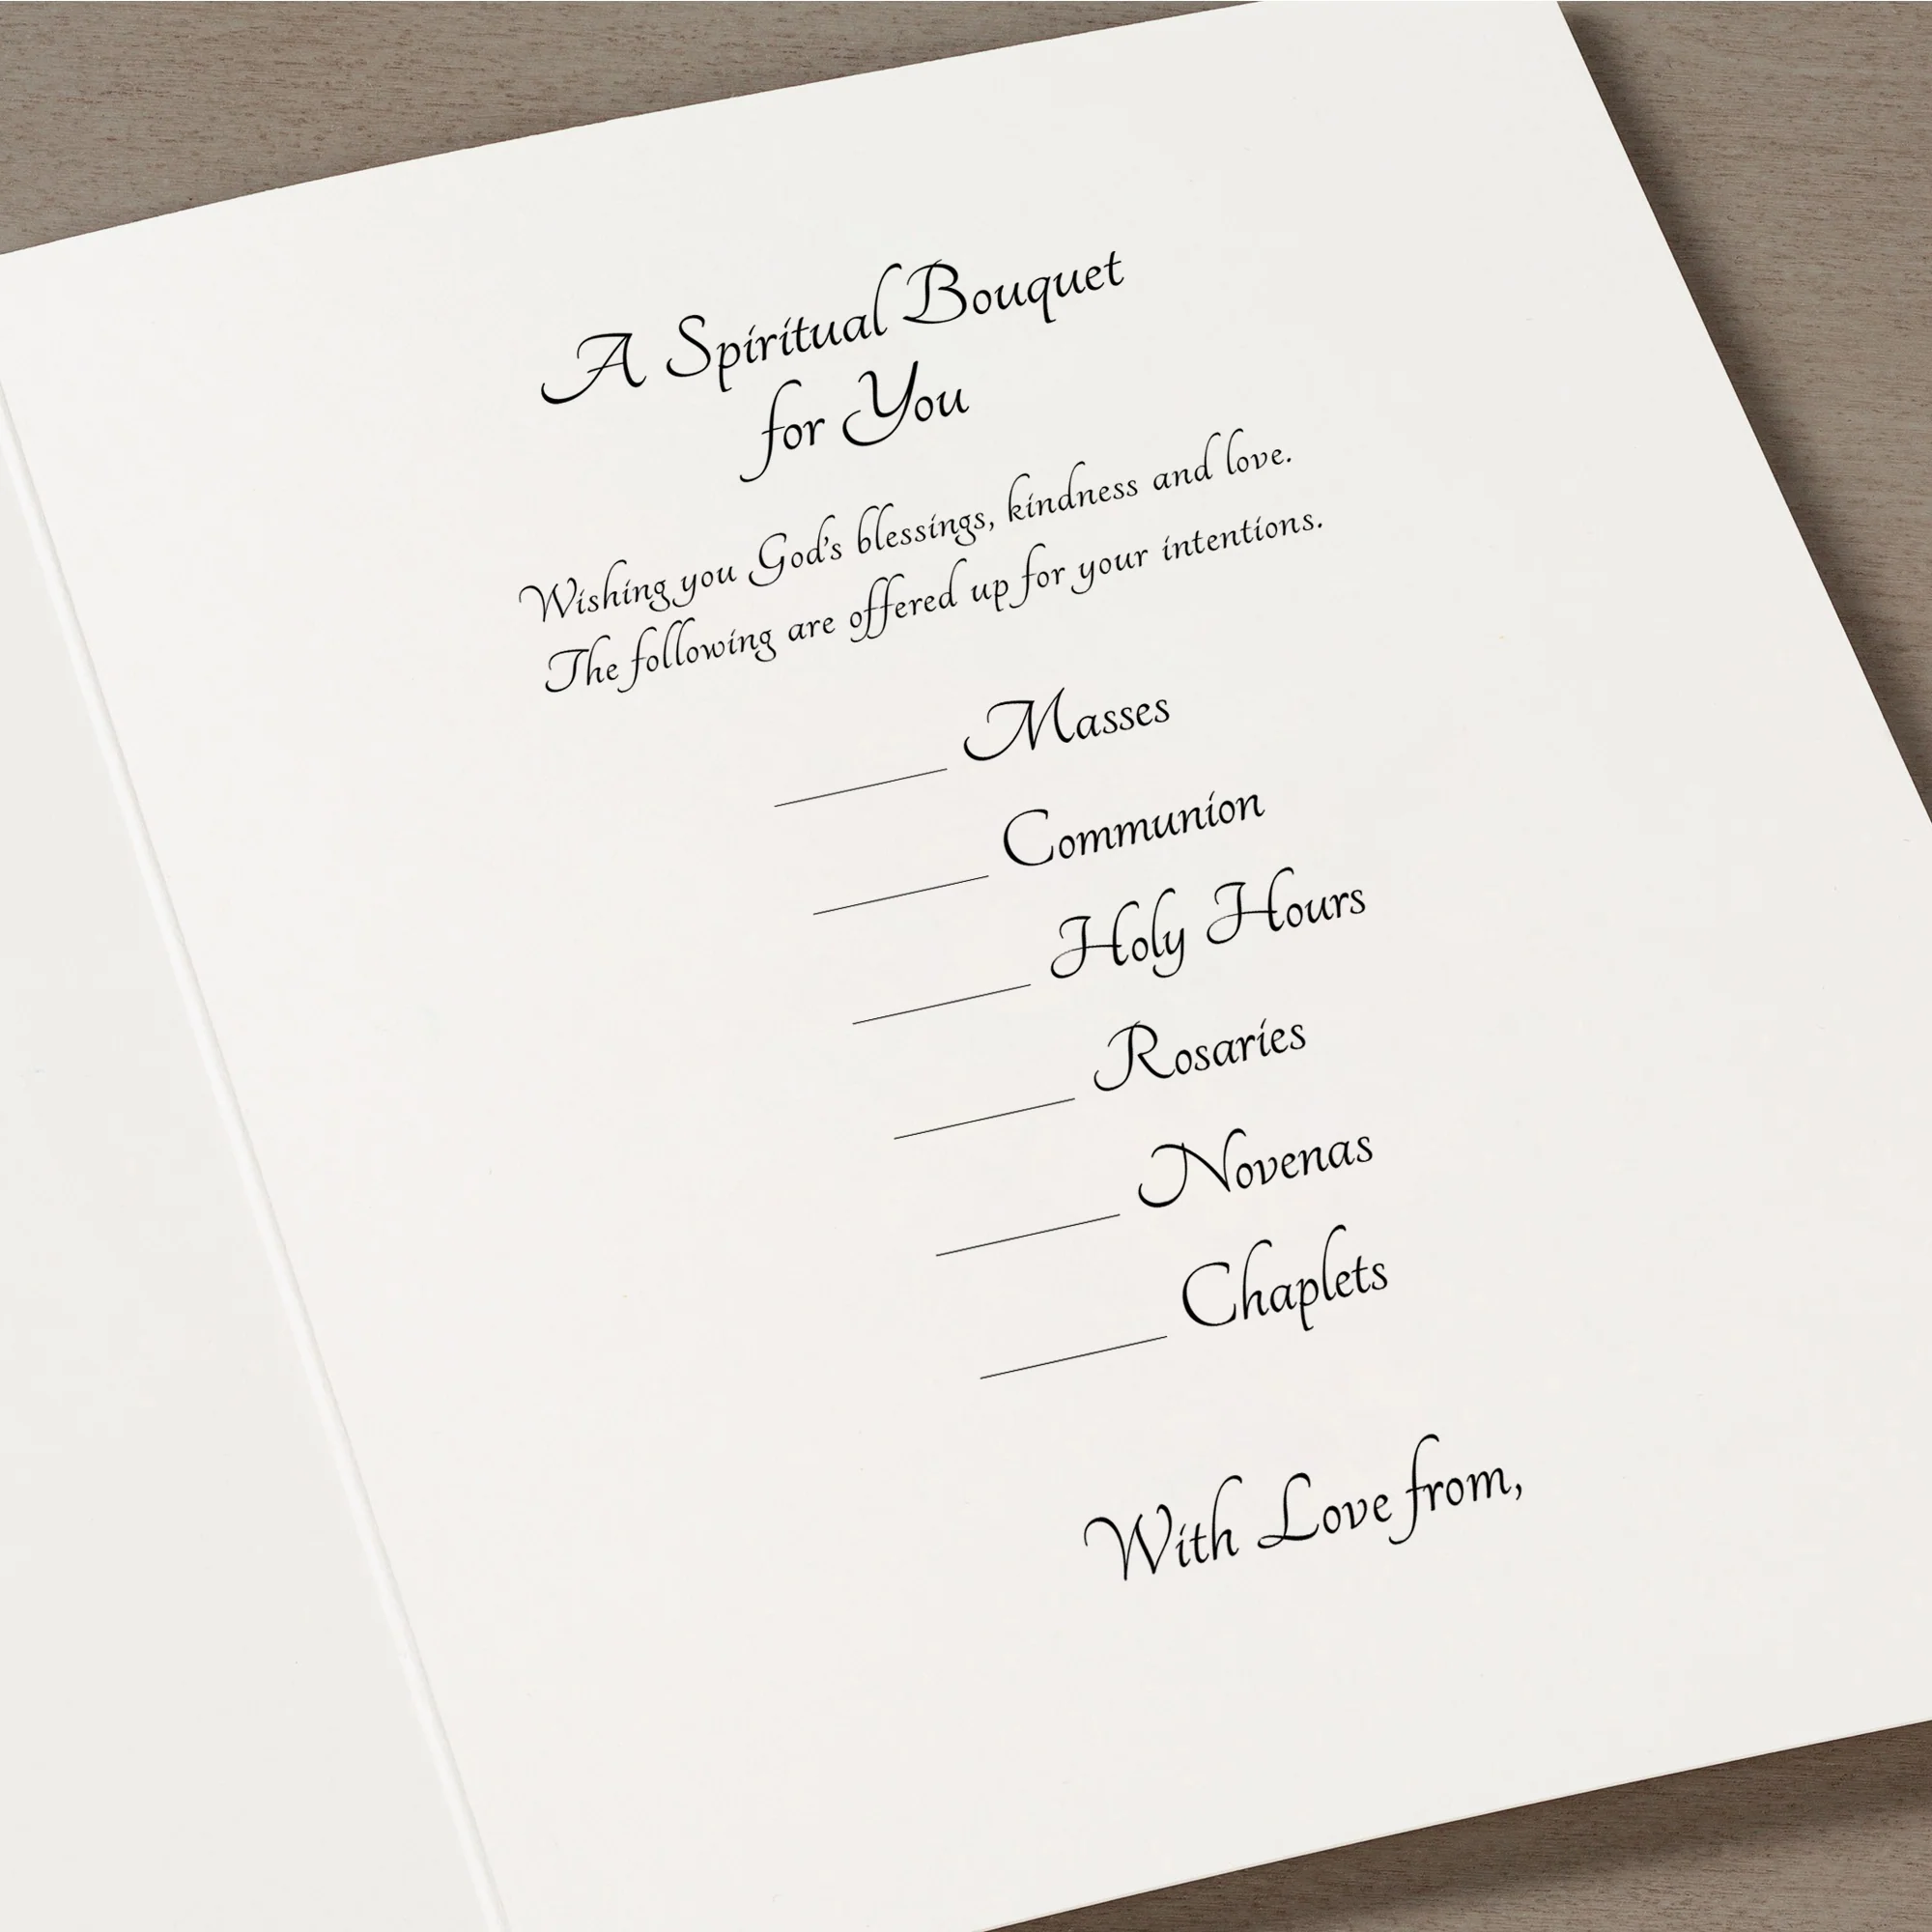 A Spiritual Bouquet
for You
Wishing you God's blessings, kindness and love.
The following are offered up for your intentions.
______ Masses
______ Communion
______ Holy Hours
______ Rosaries
______ Novenas
______ Chaplets
With Love from,